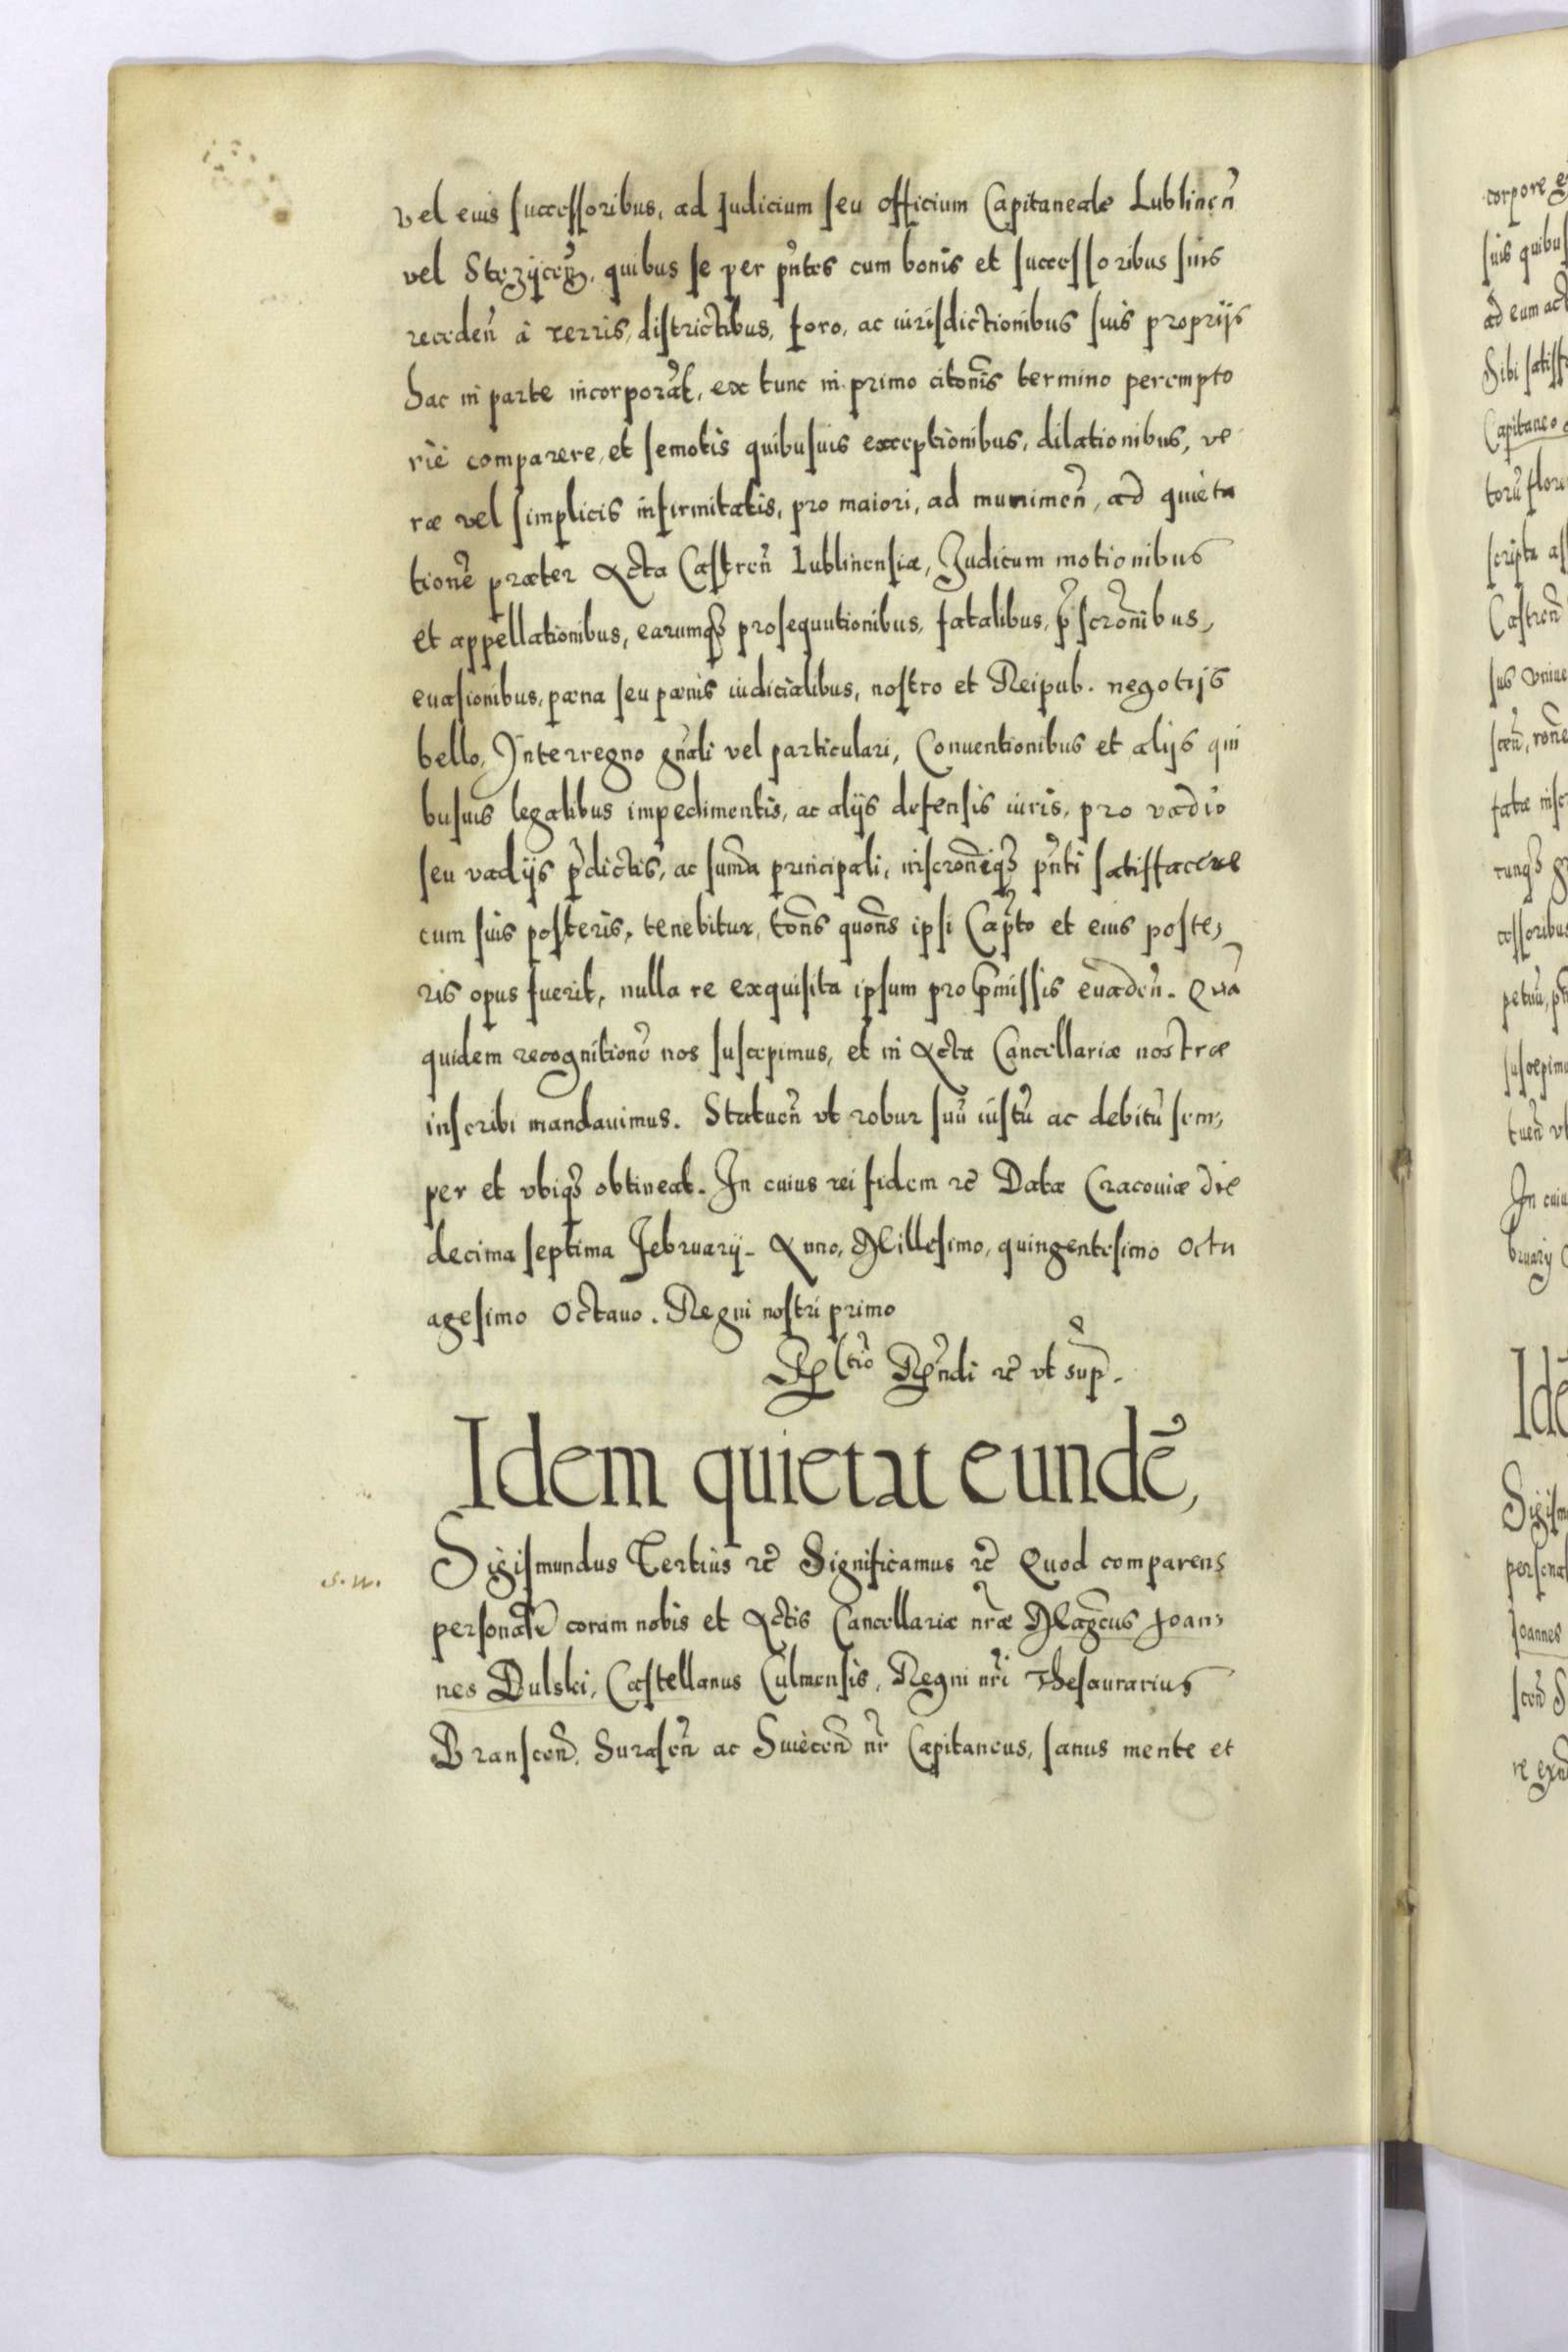 vel eius successoribus, ad Judicium seu officium Capitaneale Lublineñ
vel Stezÿceñ, quibus se per pñtes cum bonis et successoribus suis
recedeñ à terris, districtibus, foro, ac iurisdictionibus suis proprijs
hac in parte incorporat, ex tunc in primo citoñis termino perempto
riè comparere, et semotis quibusuis exceptionibus, dilationibus, ve
ræ vel simplicis infirmitatis, pro maiori, ad munimeñ, ad quieta
tionẽ præter Acta Castreñ Lublinensia, Judicum motionibus
et appellationibus, earumqȝ prosequutionibus, fatalibus, p̃scroñibus,
euasionibus, pæna seu pænis iudicialibus, nostro et Reipub. negotijs
bello, Interregno gñali vel particulari, Conuentionibus et alijs qui
busuis legalibus impedimentis, ac alijs defensis iuris, pro vadio
seu vadijs p̃dictis, ac sum̃a principali, inscroñeqȝ pñti satisfacere
cum suis posteris, tenebitur, toñs quoñs ipsi Cap̃to et eius poste,
ris opus fuerit, nulla re exquisita ipsum pro p̃missis euadeñ. Quã
quidem recognitionẽ nos suscepimus, et in Acta Cancellariæ nostræ
inscribi mandauimus. Statueñ vt robur suũ iustũ ac debitũ sem,
per et vbiqȝ obtineat. In cuius rei fidem ꝛc̃ Datæ Cracouiæ die
decima septima Februarij. Anno, Millesimo, quingentesimo Octu
agesimo Octauo. Regni nostri primo
R̃ñdi ꝛc̃ vt sup̃.
Idem quietat eundẽ,
Sigismundus Tertius ꝛc̃ Significamus ꝛc̃ Quod comparens
S. W.
personalr̃ coram nobis et Actis Cancellariæ nr̃æ Mag̃cus Joan,
nes Dulski, Castellanus Culmensis, Regni nr̃i Thesaurarius
Bransceñ, Suraseñ ac Suieceñ nr̃ Capitaneus, sanus mente et
corpore e
suis quibus
ad eum act
Sibi satisf
Capitaneo
torũ flore
scripta as
Castreñ
sus vniue
sceñ, roñe
fata inscr
runqȝ
cessoribus
petuũ, p
suscepimu
tueñ vt
In cuiu
bruarij
Idẽ
Sigism
personal
Joannes
sceñ S
re exq